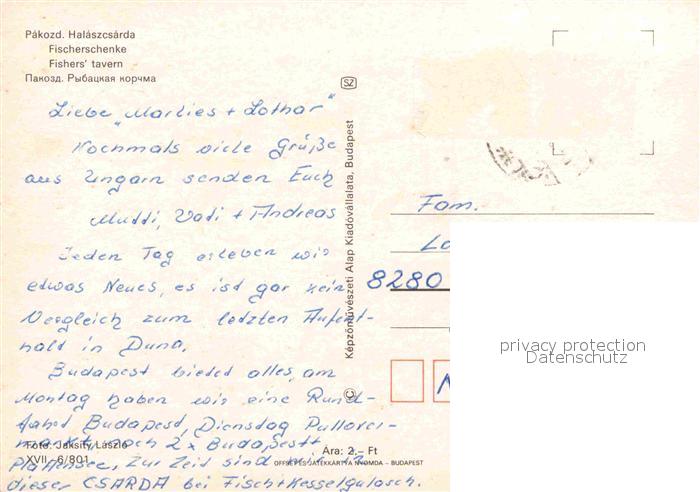 Pákozd. Halászcsárda
Fischerschenke
Fishers' tavern
Пакозд. Рыбацкая корчма
Liebe „Marlies + Lothar"
Nochmals viele Grüße
aus Ungarn senden Euch
Mutti, Vati + Andreas
Jeden Tag erleben wir
etwas Neues, es ist gar kein
Vergleich zum letzten Aufent-
halt in Duna.
Budapest bietet alles, am
Montag haben wir eine Rund-
fahrt Budapest, Dienstag
noch 2x Budapest +
Plattensee, zur Zeit sind wir in
dieser CSARDA bei Fisch + Kesselgulasch.
Foto: Jaksity László
XVII.-6/801
Ára: 2,– Ft
OFFSET ÉS JÁTÉKKÁRTYA NYOMDA – BUDAPEST
SZ
© Képzőművészeti Alap Kiadóvállalata, Budapest
Fam.
8280
privacy protection
Datenschutz